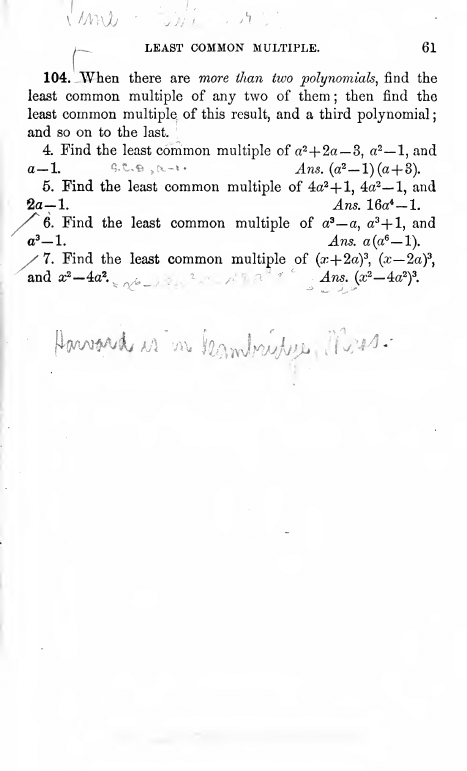 LEAST COMMON MULTIPLE. 61
104. When there are more than two polynomials, find the
least common multiple of any two of them; then find the
least common multiple of this result, and a third polynomial;
and so on to the last.
4. Find the least common multiple of a²+2a—3, a²—1, and
a—1. Ans. (a²—1)(a+3).
5. Find the least common multiple of 4a²+1, 4a²—1, and
2a—1. Ans. 16a⁴—1.
6. Find the least common multiple of a³—a, a³+1, and
a³—1. Ans. a(a⁶—1).
7. Find the least common multiple of (x+2a)³, (x—2a)³,
and x²—4a². Ans. (x²—4a²)³.
Harvard is in Cambridge, Mass.